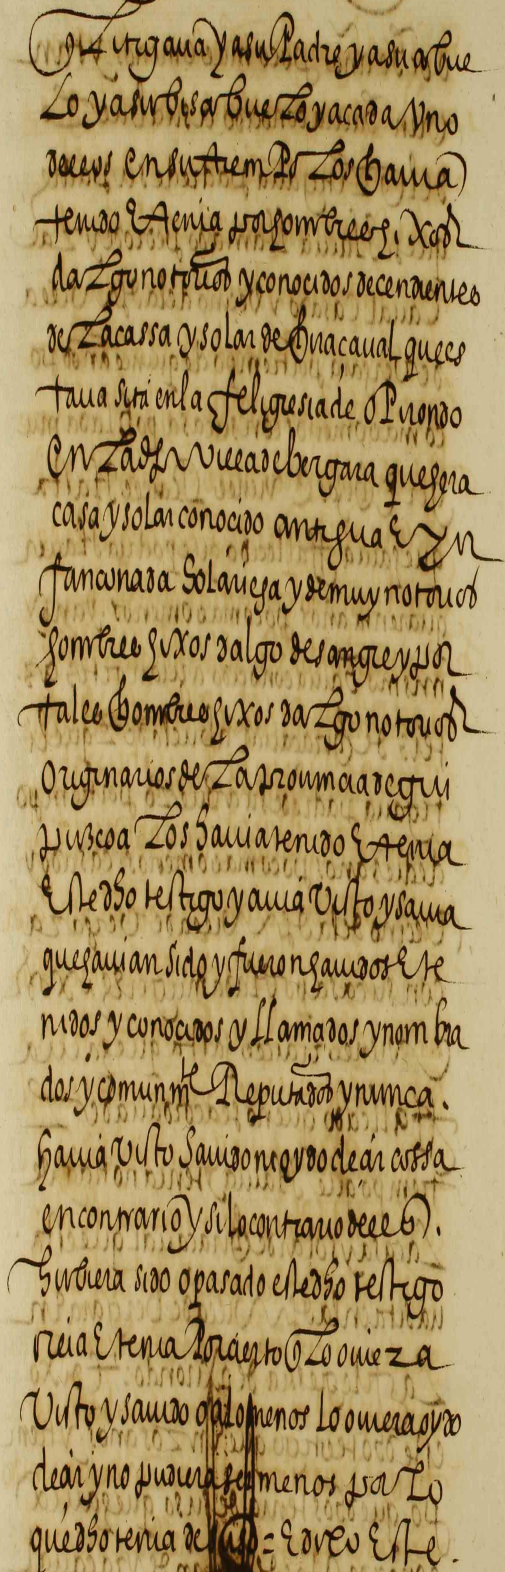 q̃ Litigava y a su Padre y a su abue
lo y a su bisabuelo y a cada vno
dellos en su tiempo los havia
tenido E tenia por hombres hixos
dalgo notorios y conocidos decendientes
de la cassa y solar de que es
tava sita en la feligresia de o Pirondo
En la de la villa de bergara que hera
casa y solar conocido antigua E yn
fanconada Solariega y de muy notorios
hombres hixos dalgo de sangre y por
tales hombres hixos dalgo notorios
originarios de la provincia de gui
puzcoa los havia tenido E tenia
Este dho testigo y avia visto y savia
que havian sido y fueron havidos E te
nidos y conocidos y llamados y nombra
dos y comunmte Reputados y nunca
havia visto savido ni oydo deçir cossa
en contrario y si lo contrario dello
hubiera sido o pasado este dho testigo
creia E tenia Por çierto q̃ lo oviera
visto y savido o a lo menos lo oviera oydo
deçir y no pudiera ser menos por lo
que dho tenia de suso = E dixo Este